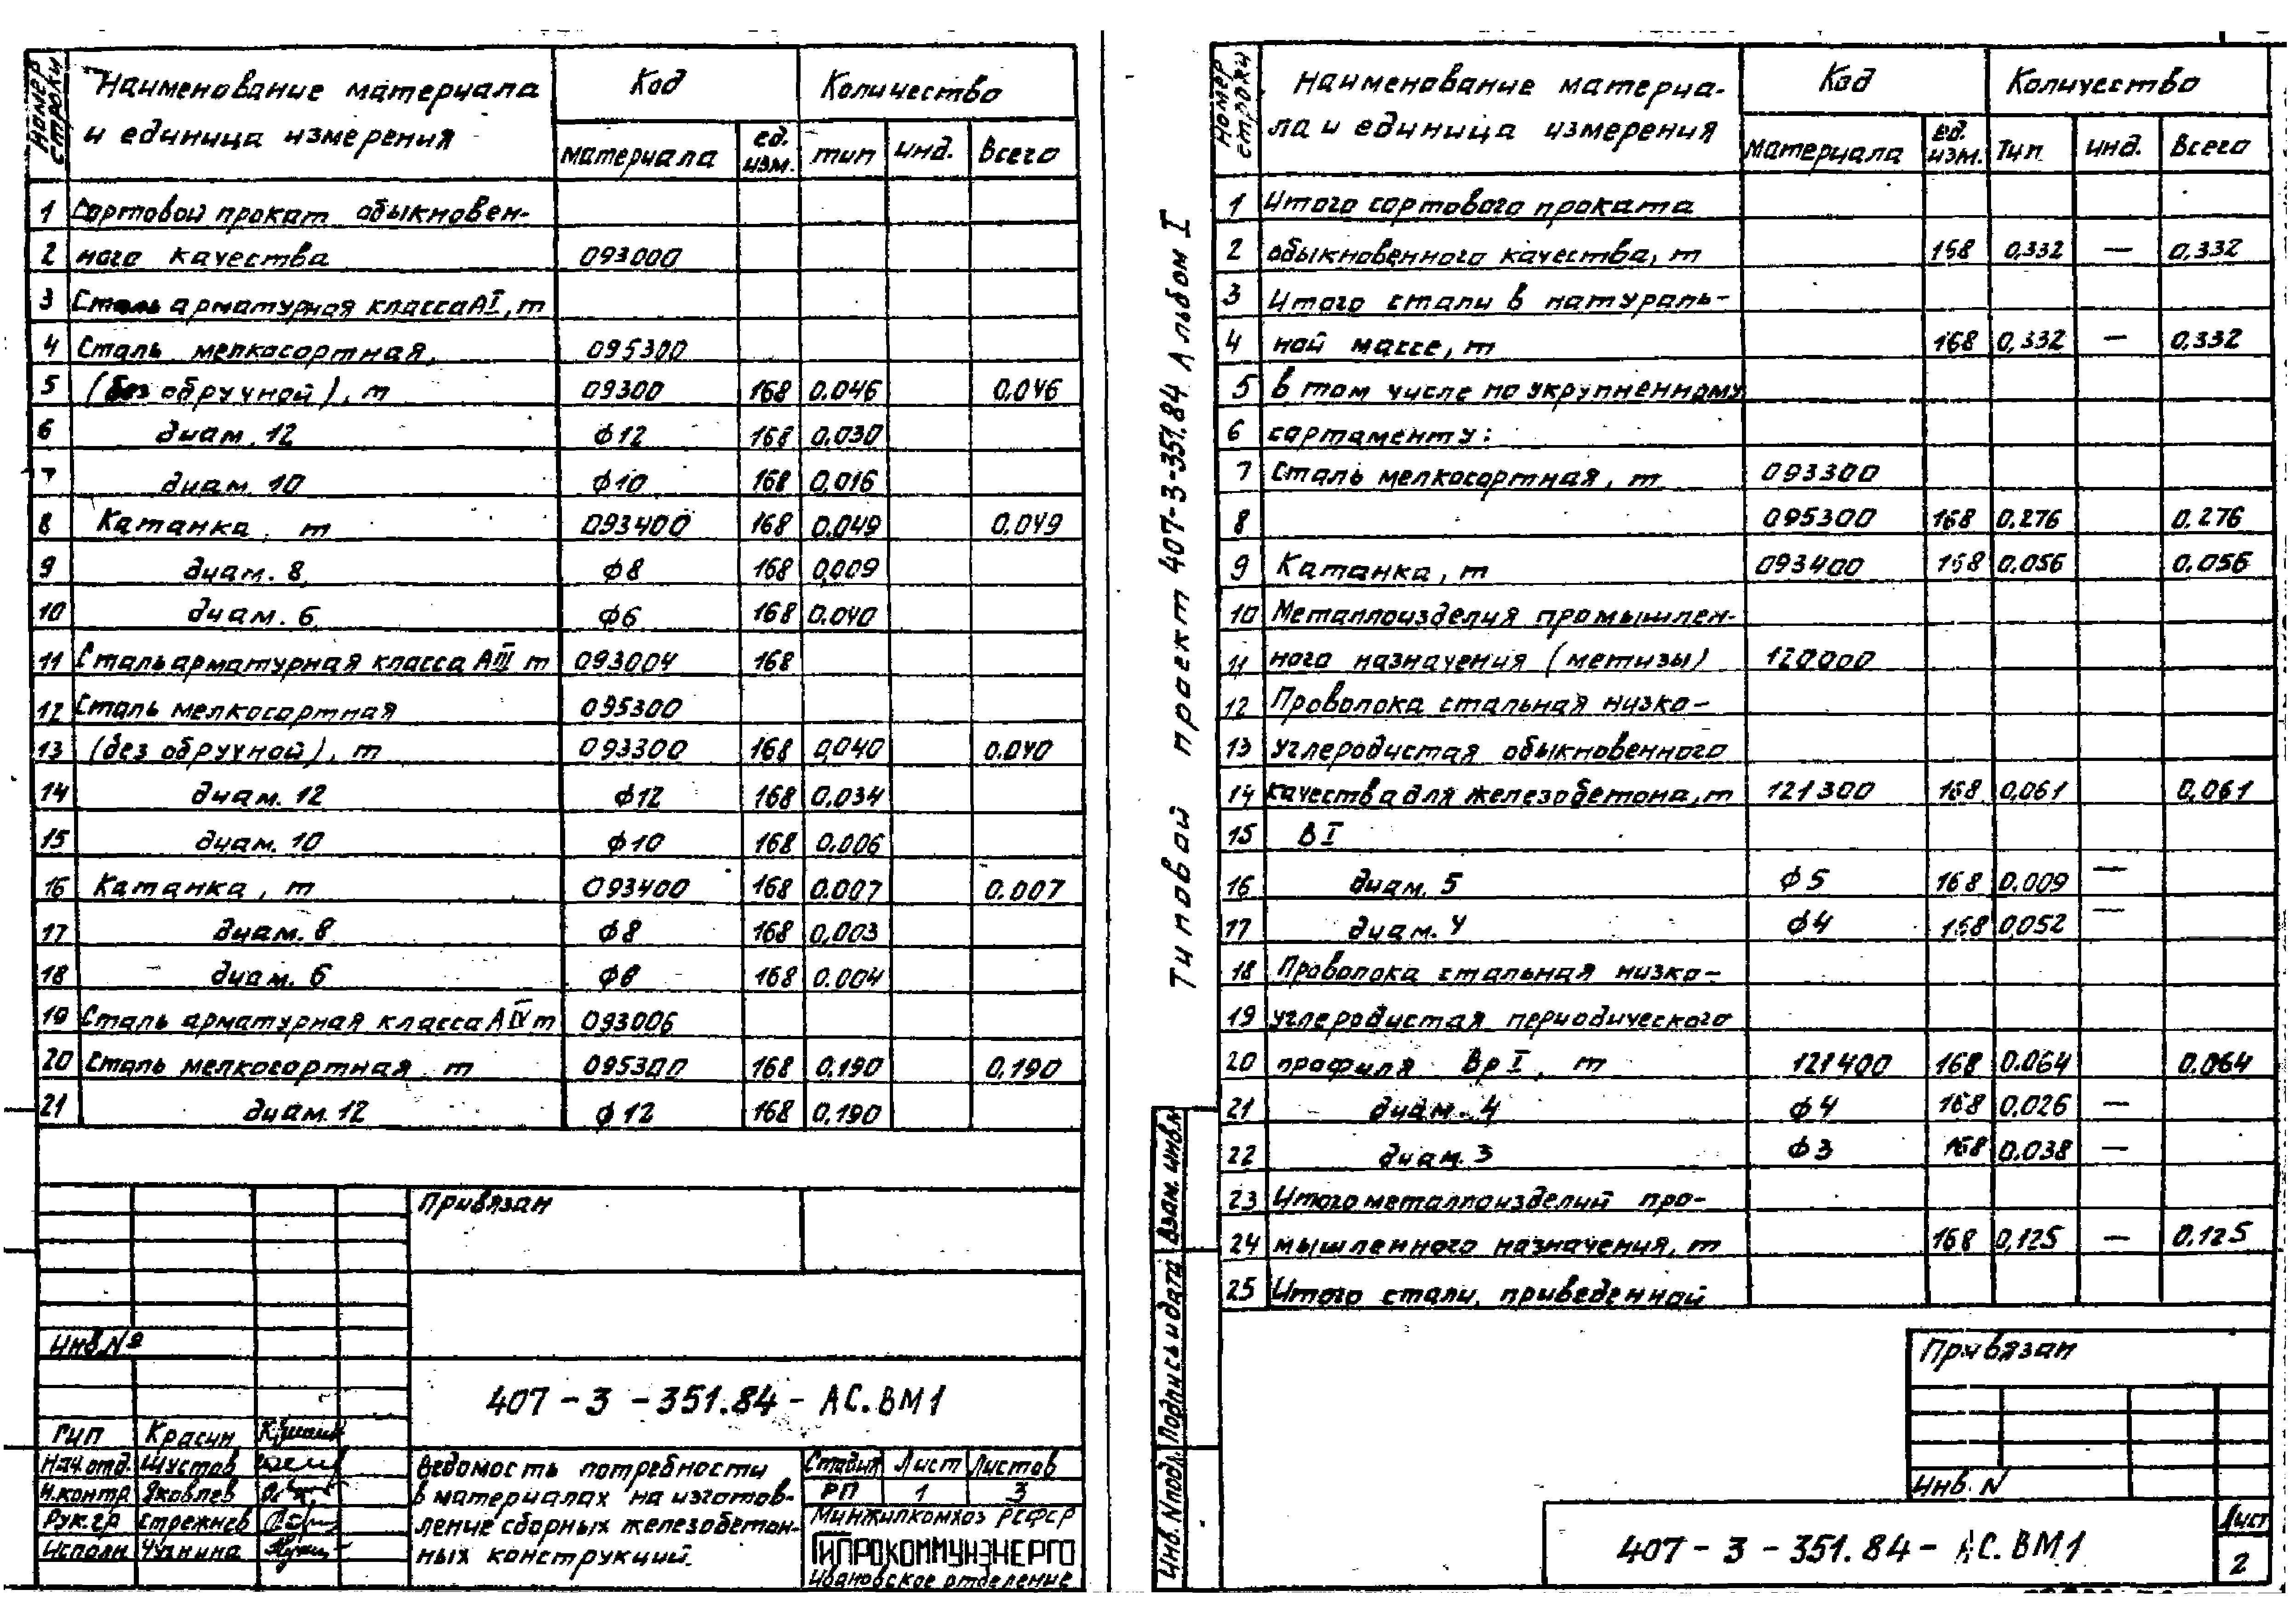 Номер строки
Наименование материала
и единица измерения
Код
Количество
материала
ед. изм.
тип
инд.
Всего
1 Сортовой прокат обыкновен-
2 ного качества 093000
3 Сталь арматурная класса АI, т
4 Сталь мелкосортная, 095300
5 (без обручной), т 09300 168 0.046 0.046
6 диам. 12 ф12 168 0.030
7 диам. 10 ф10 168 0,016
8 Катанка, т 093400 168 0.049 0.049
9 диам. 8 ф8 168 0,009
10 диам. 6 ф6 168 0.040
11 Сталь арматурная класса АIII т 093004 168
12 Сталь мелкосортная 095300
13 (без обручной), т 093300 168 0,040 0.040
14 диам. 12 ф12 168 0.034
15 диам. 10 ф10 168 0.006
16 Катанка, т 093400 168 0.007 0.007
17 диам. 8 ф8 168 0,003
18 диам. 6 ф6 168 0.004
19 Сталь арматурная класса АIV т 093006
20 Сталь мелкосортная, т 095300 168 0,190 0,190
21 диам. 12 ф12 168 0,190
Привязан
Инв.№
407-3-351.84- АС.ВМ1
ГИП Красин
Нач.отд. Шустов
Н.контр Яковлев
Рук.гр Стрежнев
Исполн Чухнина
Ведомость потребности
в материалах на изготов-
ление сборных железобетон-
ных конструкций.
Стадия Лист Листов
РП 1 3
Минжилкомхоз РСФСР
ГИПРОКОММУНЭНЕРГО
Ивановское отделение
Типовой проект 407-3-351.84 Альбом I
Номер строки
Наименование материа-
ла и единица измерения
Код
Количество
материала
ед. изм.
Тип
инд.
Всего
1 Итого сортового проката
2 обыкновенного качества, т 168 0,332 — 0,332
3 Итого стали в натураль-
4 ной массе, т 168 0,332 — 0,332
5 в том числе по укрупненному
6 сортаменту:
7 Сталь мелкосортная, т 093300
8 095300 168 0,276 0,276
9 Катанка, т 093400 168 0.056 0.056
10 Металлоизделия промышлен-
11 ного назначения (метизы) 120000
12 Проволока стальная низко-
13 углеродистая обыкновенного
14 качества для железобетона, т 121300 168 0,061 0,061
15 ВI
16 диам. 5 ф5 168 0.009 —
17 диам. 4 ф4 168 0,052 —
18 Проволока стальная низко-
19 углеродистая периодического
20 профиля ВрI, т 121400 168 0.064 0.064
21 диам. 4 ф4 168 0.026 —
22 диам. 3 ф3 168 0.038 —
23 Итого металлоизделий про-
24 мышленного назначения, т 168 0,125 — 0.125
25 Итого стали, приведенной
Взам. инв.№
Подпись и дата
Инв. N подл.
Привязан
Инв. N
407-3-351.84- АС.ВМ1
Лист
2